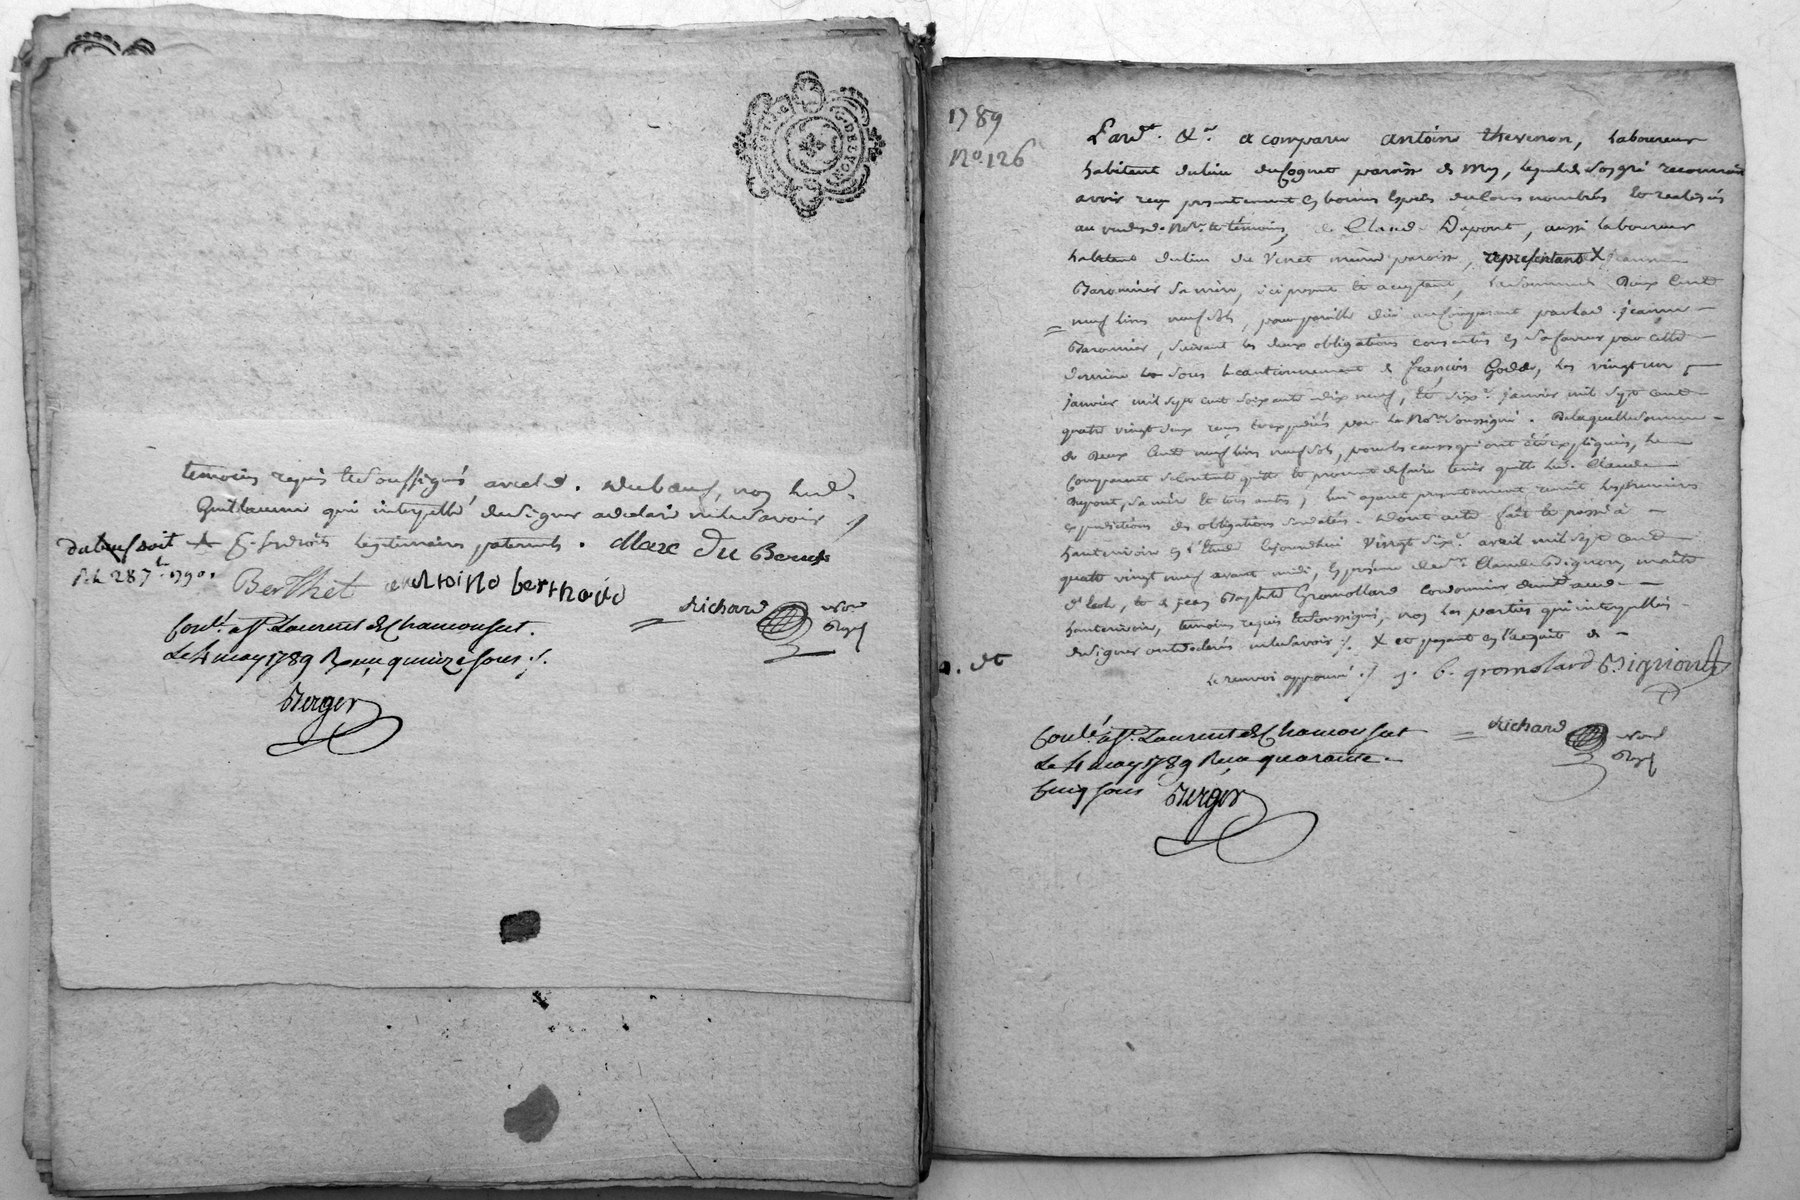 G. DE LYON
temoins requis et soussignés avec led. Dubœuf, non led.
Guillaume qui interpellé de signer a declaré ne le savoir ./.
dubeuf doit
7bre 1790.
& ses droits legitimaires paternels. Marc Du Beuf
Berthet antoine berthoud
Richard Nore Royal
Conlé. a St. Laurent de Chamousset.
Le 4 may 1789 Reçu quinze sous ./.
Berger
1789
No. 126
Pardt. &c. a comparu antoine thevenon, laboureur
habitant du lieu du Cognet paroisse de Mys, lequel de son gré reconnait
avoir reçu presentement en bonnes especes du cours nombrées et realisées
au vu desd. Nore. et témoins, de Claude Dupont, aussi laboureur
habitant du lieu du Vinet même paroisse, representant X jeanne
Baronnier sa mere, ici present et acceptant, la somme de Deux Cent
neuf livres neuf sols, pour pareille due au Comparant par lad. jeanne
Baronnier, suivant les deux obligations consenties en sa faveur par cette
derniere sous le cautionnement de françois Godde, les vingt un
janvier mil sept cent soixante dix neuf, et six janvier mil sept cent
quatre vingt deux reçus et expediés par le Nore. soussigné. De laquelle somme
de Deux Cent neuf livres neuf sols, pour les causes qui ont été expliquées, le
Comparant se contente quitte et promet de faire tenir quitte led. Claude
Dupont, sa mere et tous autres, lui ayant presentement remit les premieres
expeditions des obligations susdatées. Dont acte fait et passé à
hauterivoire en l'Etude cejourdhui vingt six avril mil sept cent
quatre vingt neuf avant midi, en presence de sr. Claude Bignon, maitre
d'ecole, et de jean Baptiste Gromollard cordonnier demt. aud.
hauterivoire, temoins requis et soussignés, non les parties qui interpellées
de signer ont declarés ne le savoir ./. X et payant en l'acquit de
le renvoi approuvé ./. j. b. gromolard Bignion
Richard Nore Royal
Conlé. a St. Laurent de Chamousset
Le 4 may 1789 Reçu quarante
Cinq sous Berger